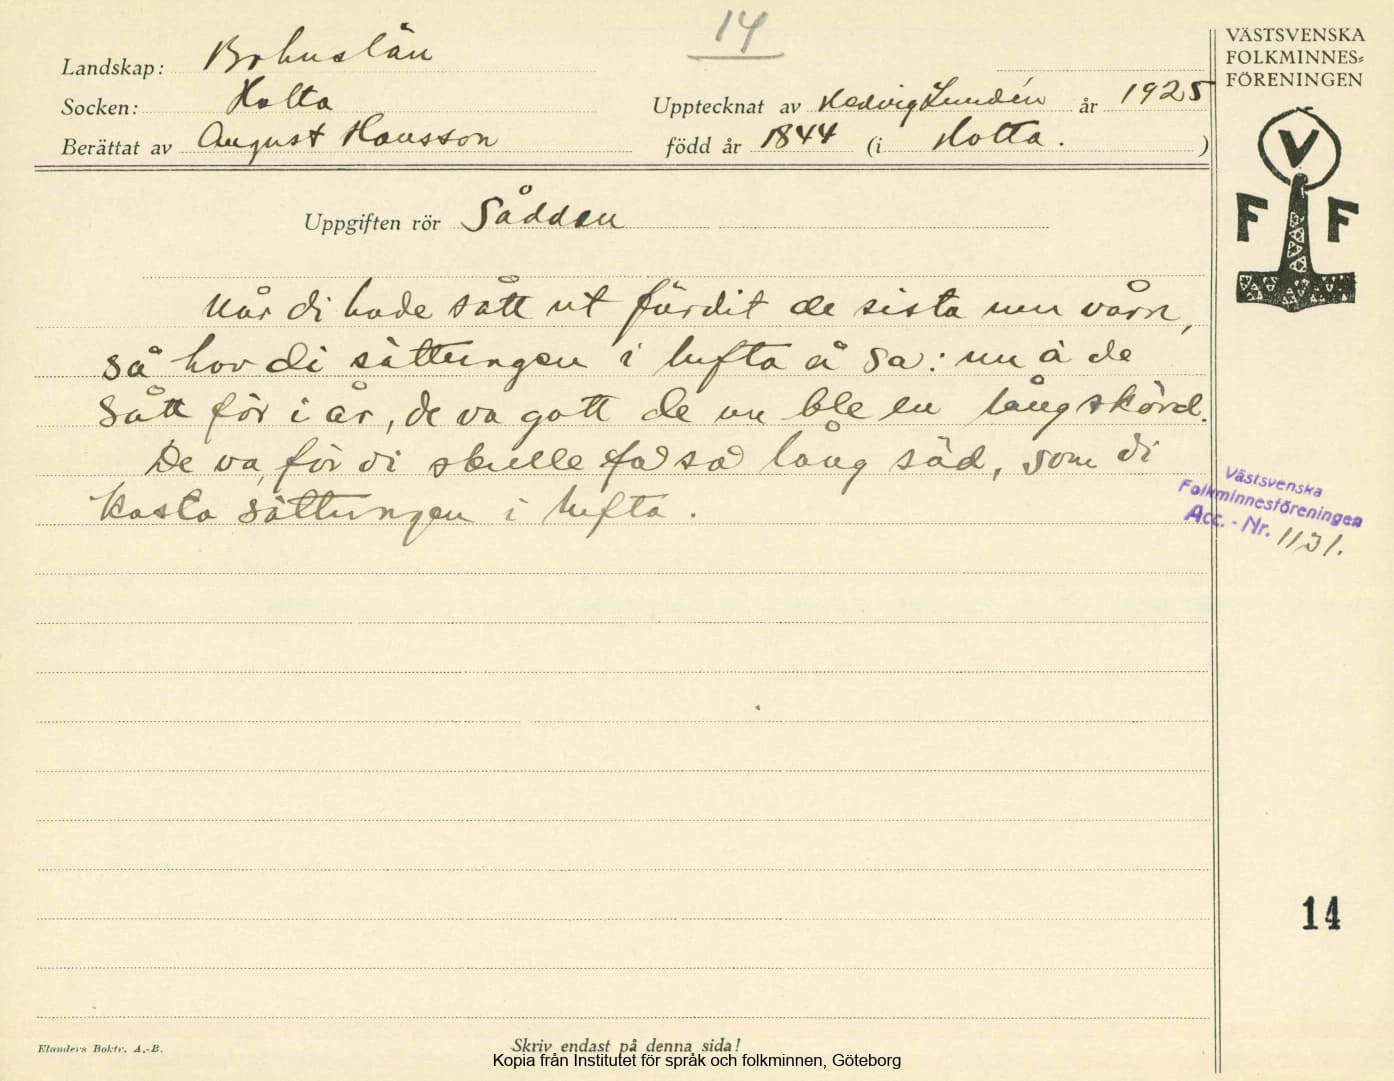 14
VÄSTSVENSKA
FOLKMINNES=
FÖRENINGEN
Landskap: Bohuslän
Socken: Holta
Upptecknat av Hedvig Lundén år 1925
Berättat av August Hansson
född år 1844 (i Holta.)
V
F F
Uppgiften rör Sådden
När di hade sått ut färdit de sista um vårn,
så hov di sättungen i lufta å sa: nu ä de
sått för i år, de va gott de nu ble en lång skörd.
De va för di skulle få så lång säd, som di
kasta sättungen i lufta.
Västsvenska
Folkminnesföreningen
Acc. - Nr. 1131.
14
Elanders Boktr. A.-B.
Skriv endast på denna sida!
Kopia från Institutet för språk och folkminnen, Göteborg